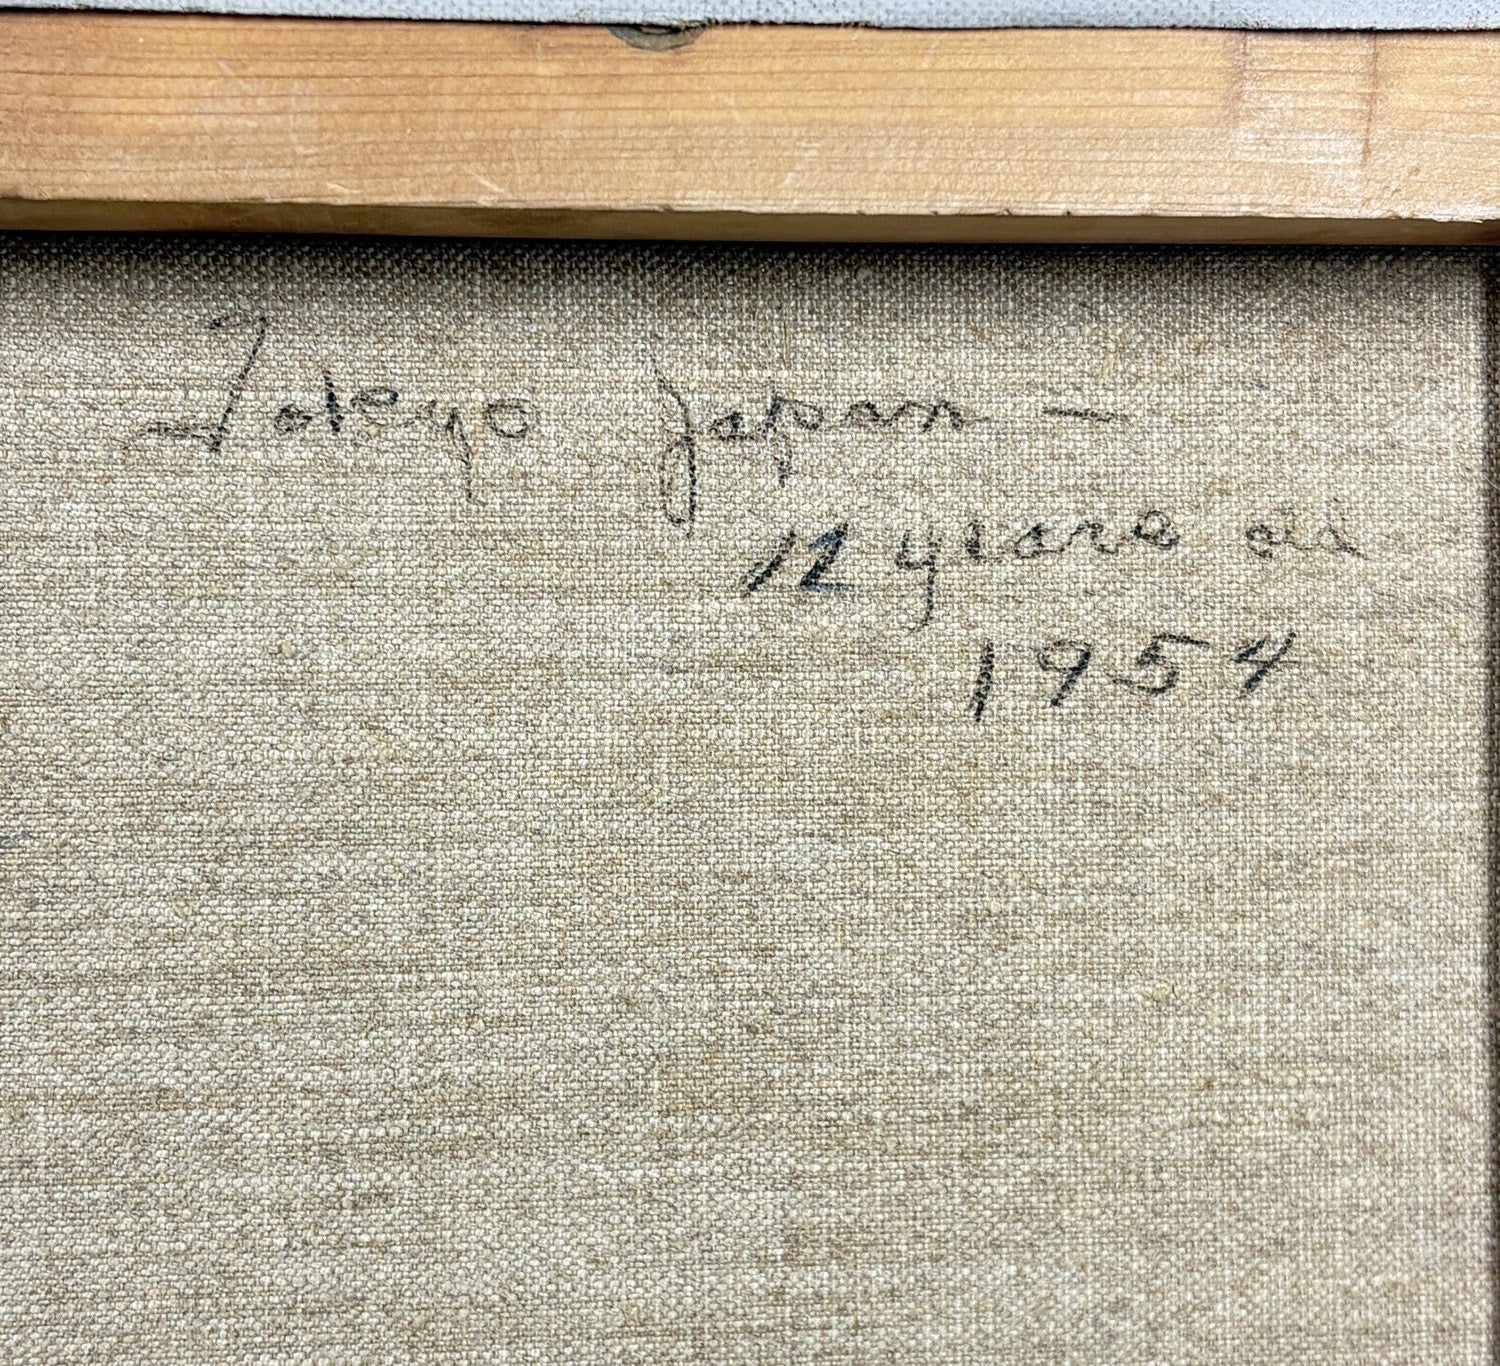 Tokyo Japan —
12 years old
1954